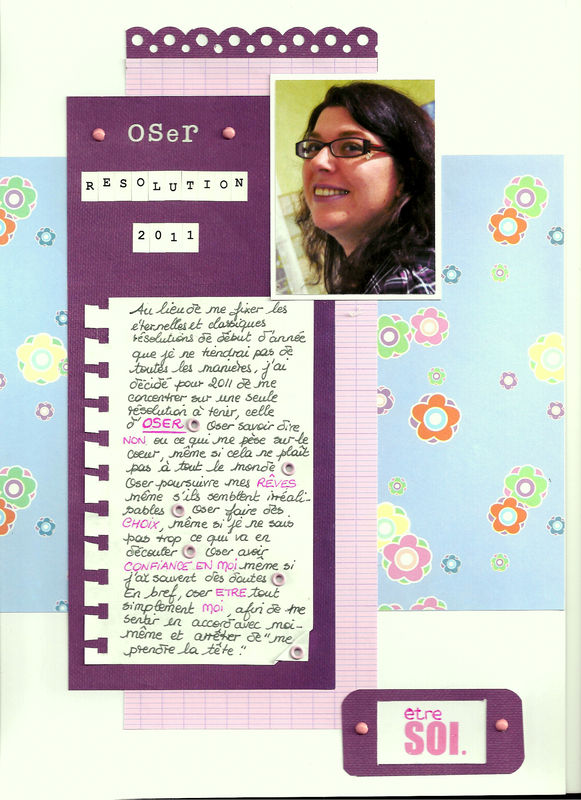 OSER
RESOLUTION
2011
Au lieu de me fixer les
éternelles et classiques
résolutions de début d'année
que je ne tiendrai pas de
toutes les manières, j'ai
décidé pour 2011 de me
concentrer sur une seule
résolution à tenir, celle
d'OSER Oser savoir dire
NON ou ce qui me pèse sur le
coeur, même si cela ne plaît
pas à tout le monde
Oser poursuivre mes RÊVES
même s'ils semblent irréali-
sables Oser faire des
CHOIX, même si je ne sais
pas trop ce qui va en
découler Oser avoir
CONFIANCE EN MOI même si
j'ai souvent des doutes
En bref, oser ETRE tout
simplement MOI, afin de me
sentir en accord avec moi-
même et arrêter de "me
prendre la tête."
être
SOI.